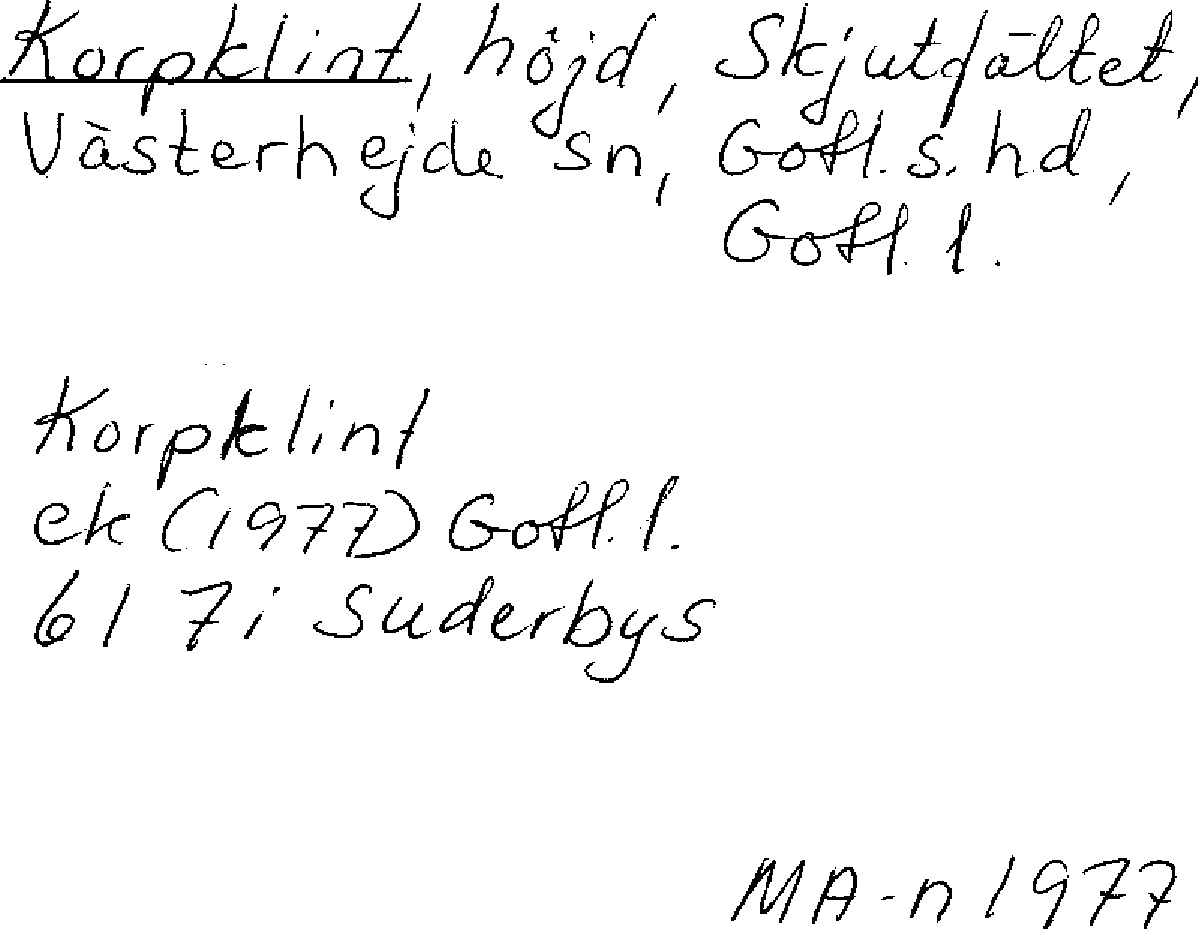 Korpklint, höjd, Skjutfältet,
Västerhejde sn, Gotl. s. hd,
Gotl. l.
Korpklint
ek (1977) Gotl. l.
61 7i Suderbys
MA-n 1977